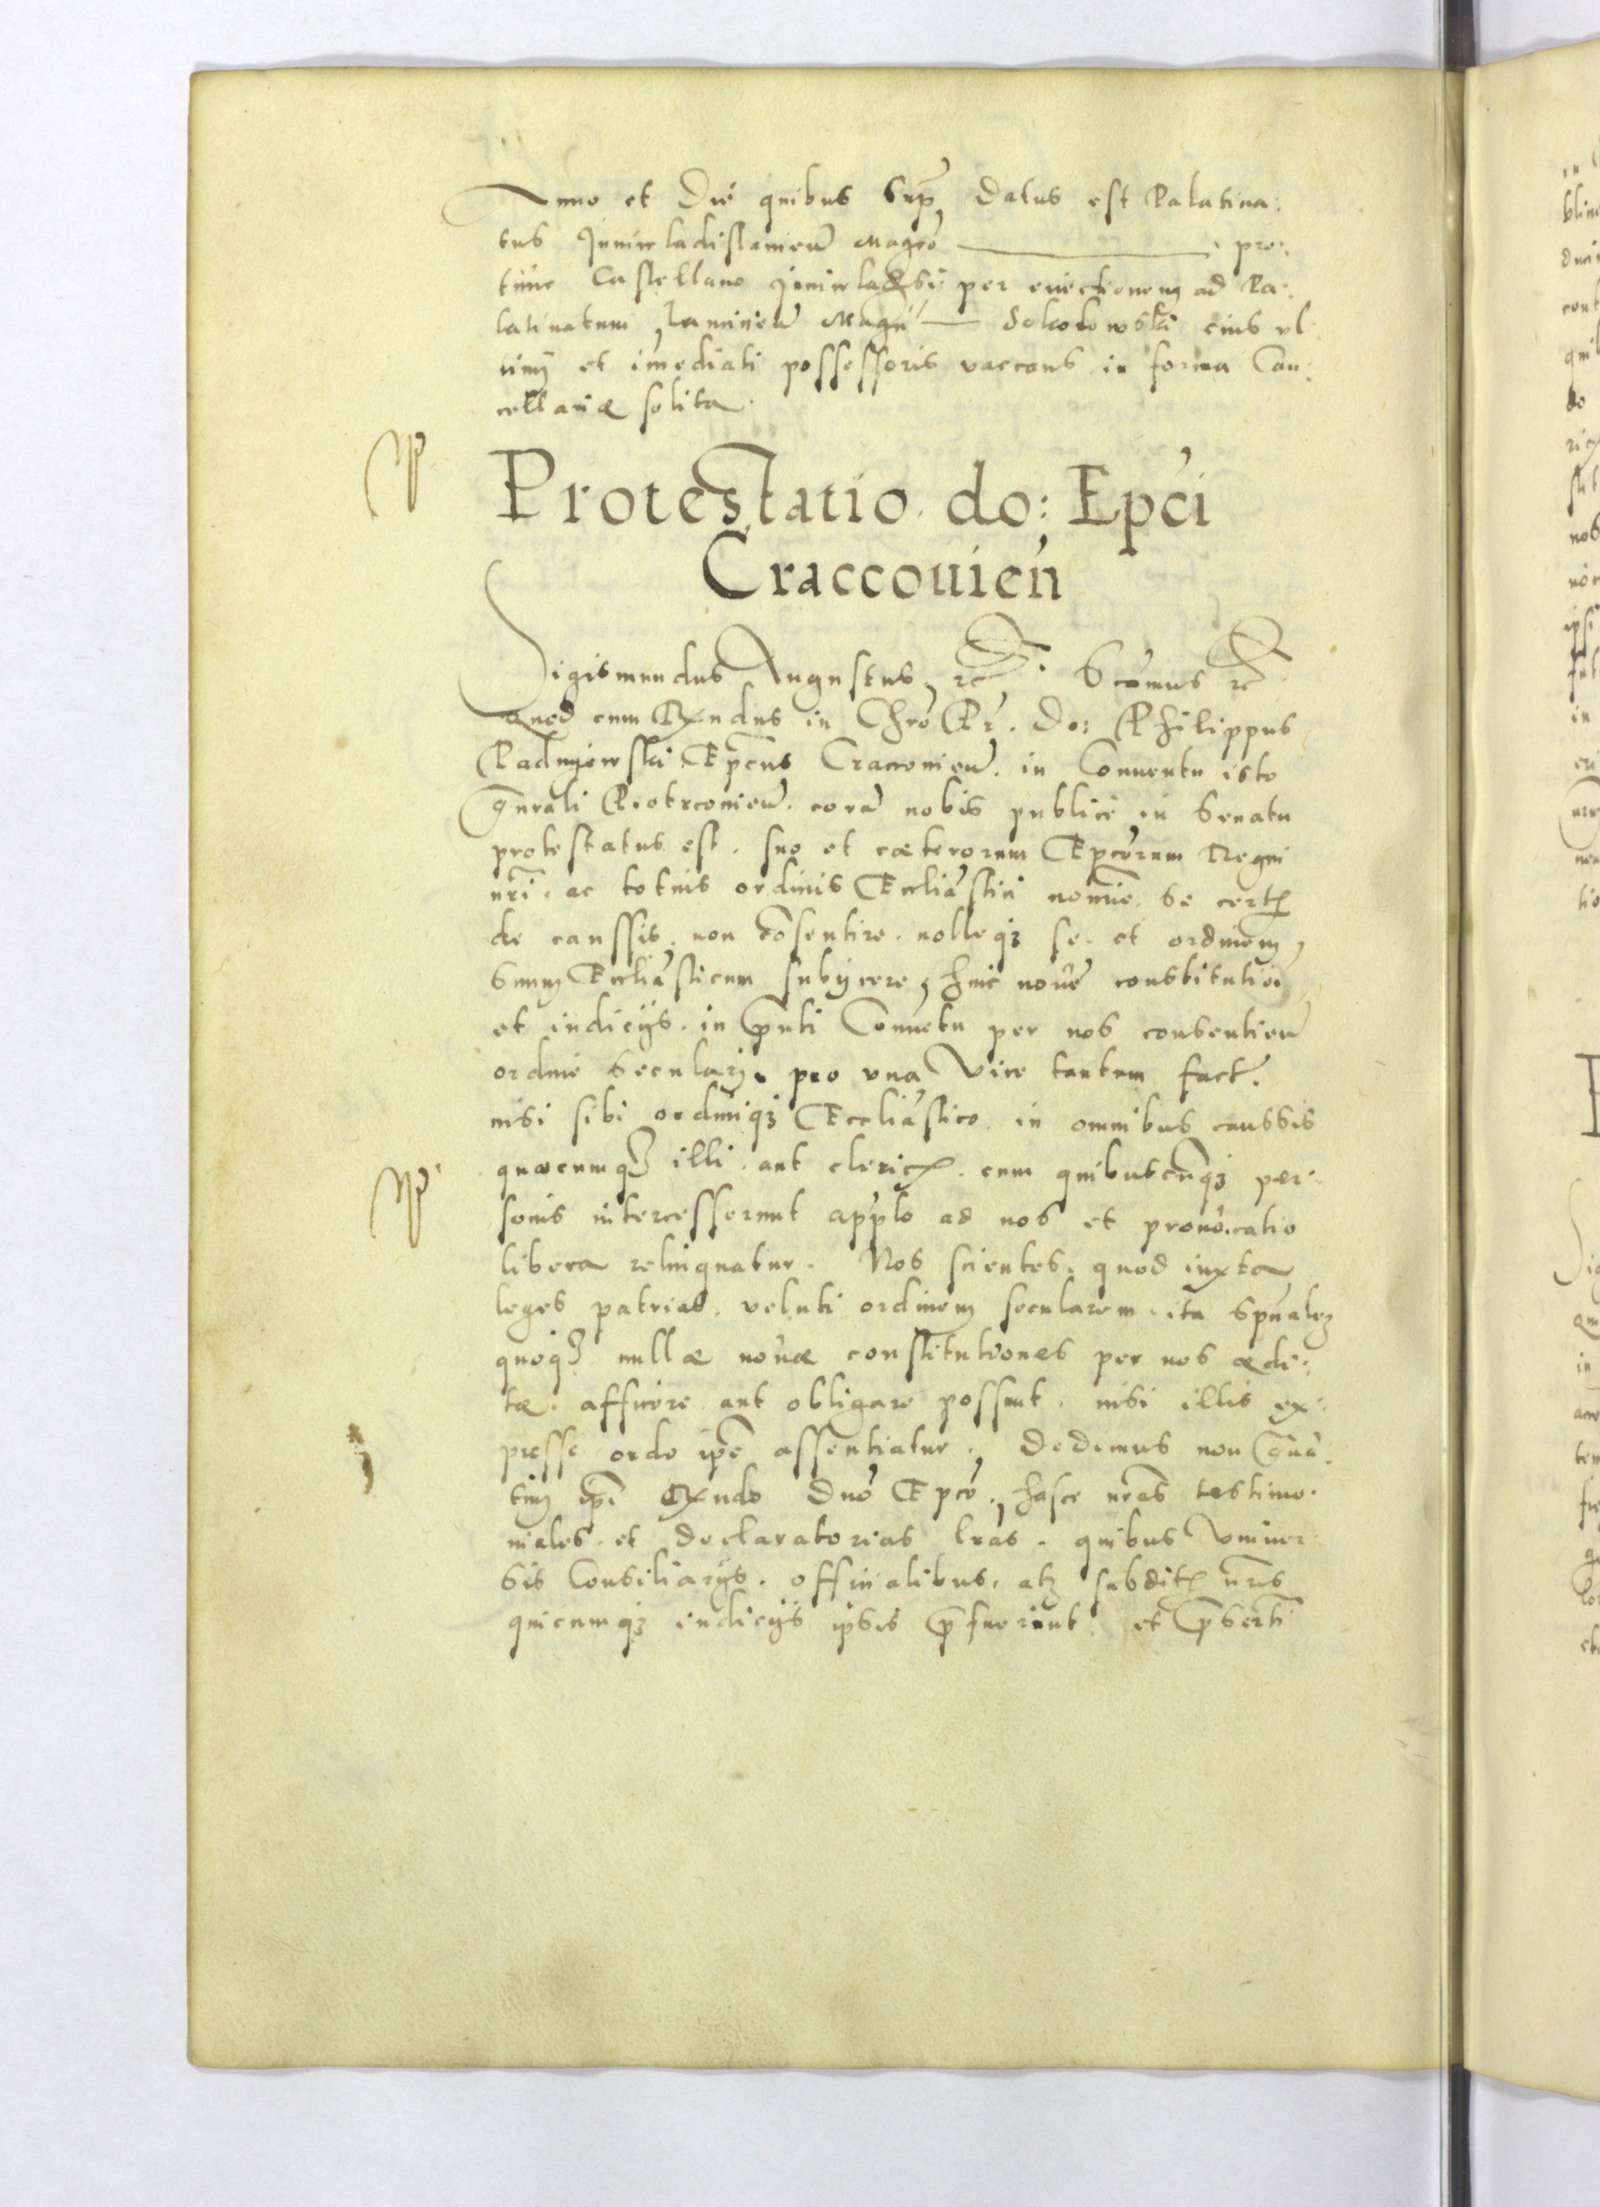 Anno et Die quibus supra datus est Palatina:
tus Juniwladislauien Magco — pro:
tunc Castellano per euectionem ad Pa:
latinatum Lancicien Magci — Sokolowski eius vl
timj et imediati possessoris vaccans in forma Can:
cellariæ solita.
Protestatio do: Epci
Craccouien
Sigismundus Augustus, etc. Scomus etc
Quod cum Rxndus in Chro Pr. Do: Philippus
Padnyewski Epcus Craccouien. in Conuentu isto
gnrali Piotrcouien. cora nobis publice in Senatu
protestatus est. suo et cæterorum Epcorum Regni
nri. ac totius ordinis Eccliastici nomine. se certis
de caussis. non cosentire. nolleq3 se. et ordinem
suum Eccliasticum subijcere, huic noue constitutioi
et iudicijs. in pnti Conuetu per nos consentien
ordine seculari. pro vna Vice tantum fact.
nisi sibi ordiniq3 Eccliastico. in omnibus caussis
quæcumq3 illi. aut clericis. cum quibuscunq3 per:
sonis intercesserint applo ad nos et prouocatio
libera relinquatur. Nos scientes. quod iuxta
leges patrias. veluti ordinem secularem. ita spualem
quoq3 nullæ nouæ constitutiones per nos ædi:
tæ. afficere aut obligare possunt. nisi illis ex:
presse ordo ipe assentiatur., Dedimus non
ipi Rxndo Dno Epco., hasce nras testimo:
niales. et declaratorias lras. quibus Vniuer:
sis Consiliarijs. officialibus. atq3 subditis nris
quicumq3 iudicijs ipsis pfuerint. et pserti